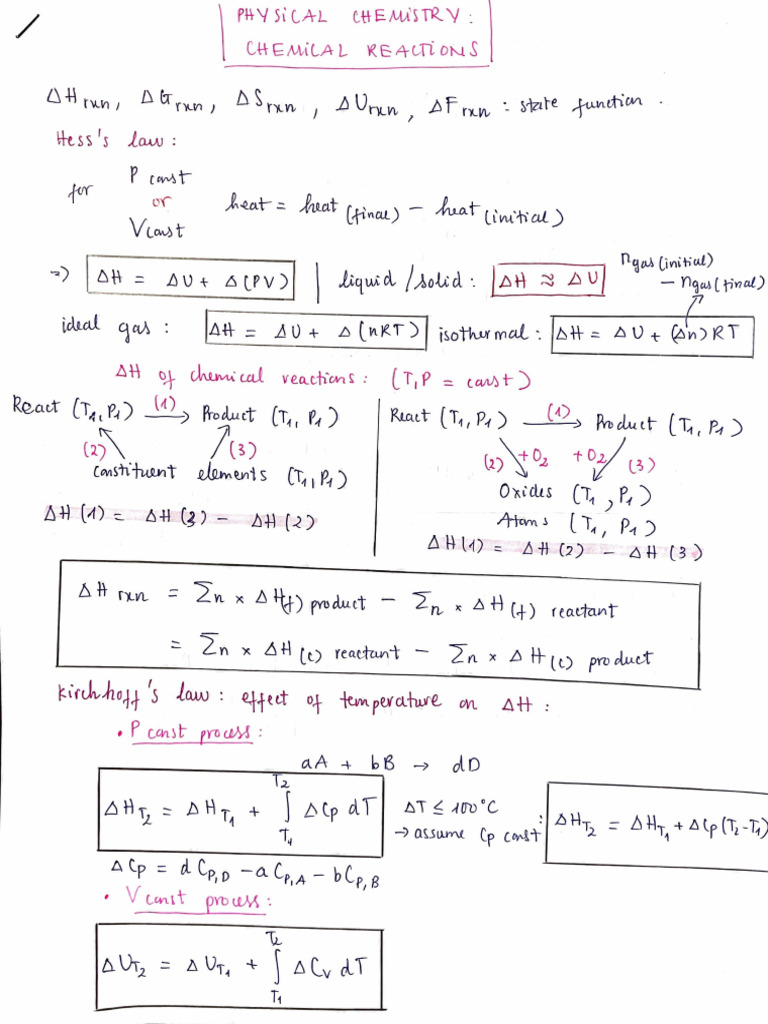 PHYSICAL CHEMISTRY:
CHEMICAL REACTIONS
ΔH rxn, ΔG rxn, ΔS rxn, ΔU rxn, ΔF rxn : state function.
Hess's law:
for P const or V const heat = heat (final) − heat (initial)
=> ΔH = ΔU + Δ(PV) | liquid/solid: ΔH ≈ ΔU
n gas (initial) − n gas (final)
ideal gas: ΔH = ΔU + Δ(nRT) isothermal: ΔH = ΔU + (Δn)RT
ΔH of chemical reactions: (T,P = const)
React (T1,P1) (1)→ Product (T1, P1)
(2) (3)
constituent elements (T1,P1)
ΔH(1) = ΔH(3) − ΔH(2)
React (T1,P1) (1)→ Product (T1,P1)
(2) +O2 +O2 (3)
Oxides (T1,P1)
Atoms (T1,P1)
ΔH(1) = ΔH(2) − ΔH(3)
ΔH rxn = Σn × ΔH(f) product − Σn × ΔH(f) reactant
= Σn × ΔH(c) reactant − Σn × ΔH(c) product
Kirchhoff's law: effect of temperature on ΔH:
• P const process:
aA + bB → dD
ΔH_T2 = ΔH_T1 + ∫_T1^T2 ΔCp dT
ΔT ≤ 100°C
→ assume Cp const : ΔH_T2 = ΔH_T1 + ΔCp(T2-T1)
ΔCp = dC_P,D − aC_P,A − bC_P,B
• V const process:
ΔU_T2 = ΔU_T1 + ∫_T1^T2 ΔCv dT